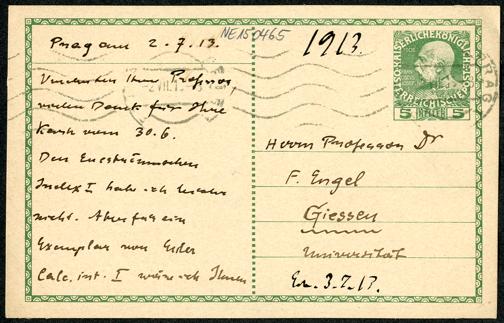 Prag am 2.7.13.
NE150465
1913.
Verehrter Herr Professor,
vielen Dank für Ihre
Karte vom 30.6.
Den Eneströmschen
Index I habe ich leider
nicht. Aber für ein
Exemplar von Euler
Calc. int. I wäre ich Ihnen
KAISERLICHE KÖNIGLICHE
ÖSTERREICHISCHE POST
5 HELLER 5
PRAG
Herrn Professor Dr
F. Engel
Giessen
Universität
Er. 3.7.13.